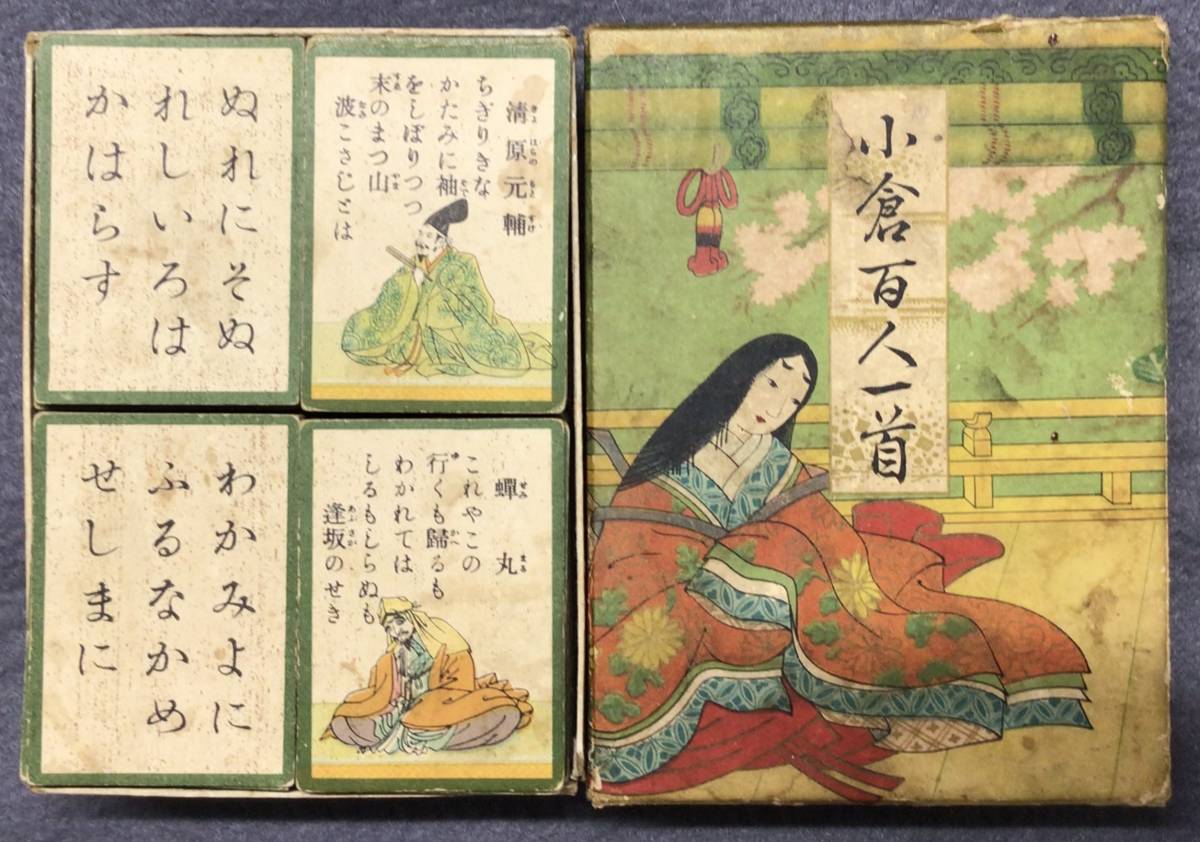 小倉百人一首
清原元輔
ちぎりきな
かたみに袖
をしぼりつつ
末のまつ山
波こさじとは
ぬれにそぬ
れしいろは
かはらす
蟬丸
これやこの
行くも歸るも
わかれては
しるもしらぬも
逢坂のせき
わかみよに
ふるなかめ
せしまに